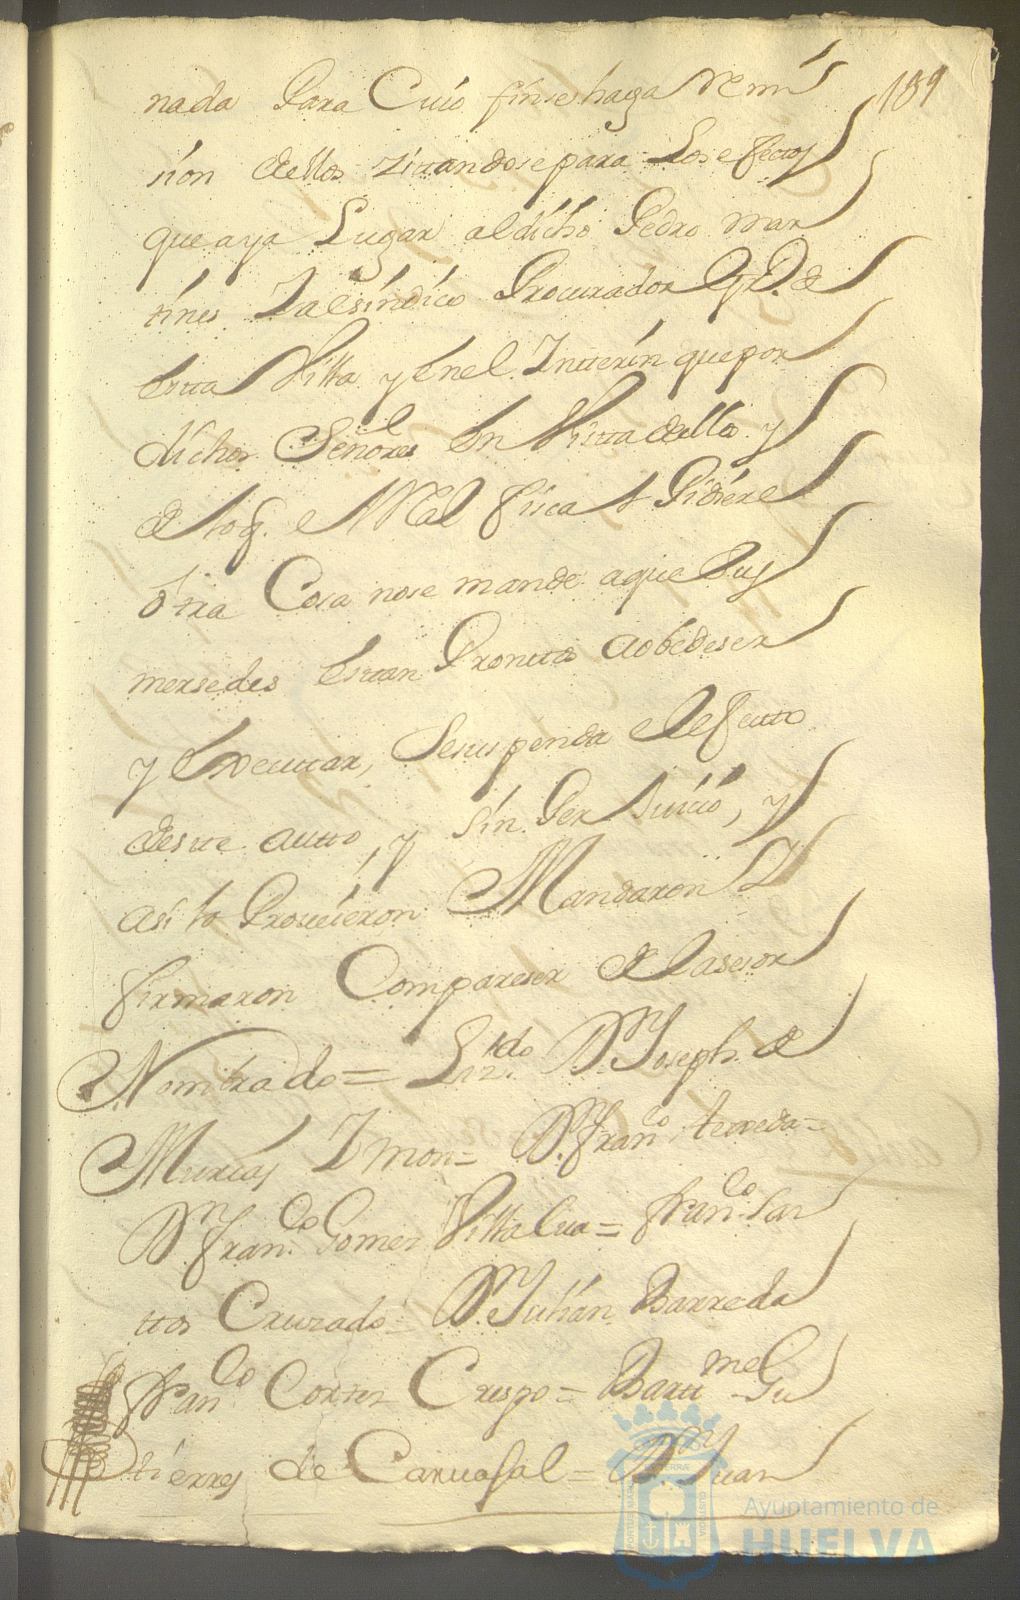 189
nada Para Cuio fin se haga Remi
sion dellos zitandose para Los efectos
que aya Lugar al dicho Pedro Mar
tines Y al sindico Procurador Gl. de
Esta Villa y En el Ynterin que por
dichos Señores En Vista dello y
de lo q. el Real fiscal Pidiere
otra Cosa no se mande a que Sus
mersedes Estan Promttos a obedeser
y Executar, Se suspenda el efectto
deste autto, y sin Perjuicio, y
asi lo Proveieron Mandaron Y
firmaron Compareser del asesor
Nombrado = Lizdo. Dn. Joseph de
Murias Ymon = Dn. Franco. texeda =
Dn. Franco. Gomes Villalva = Franco. San
ttos Cruzado = Dn. Julian Barreda
Franco. Cortes Crespo = Bartme. Gu
tierres de Carvasal = Dn. Juan
Ayuntamiento de
HUELVA